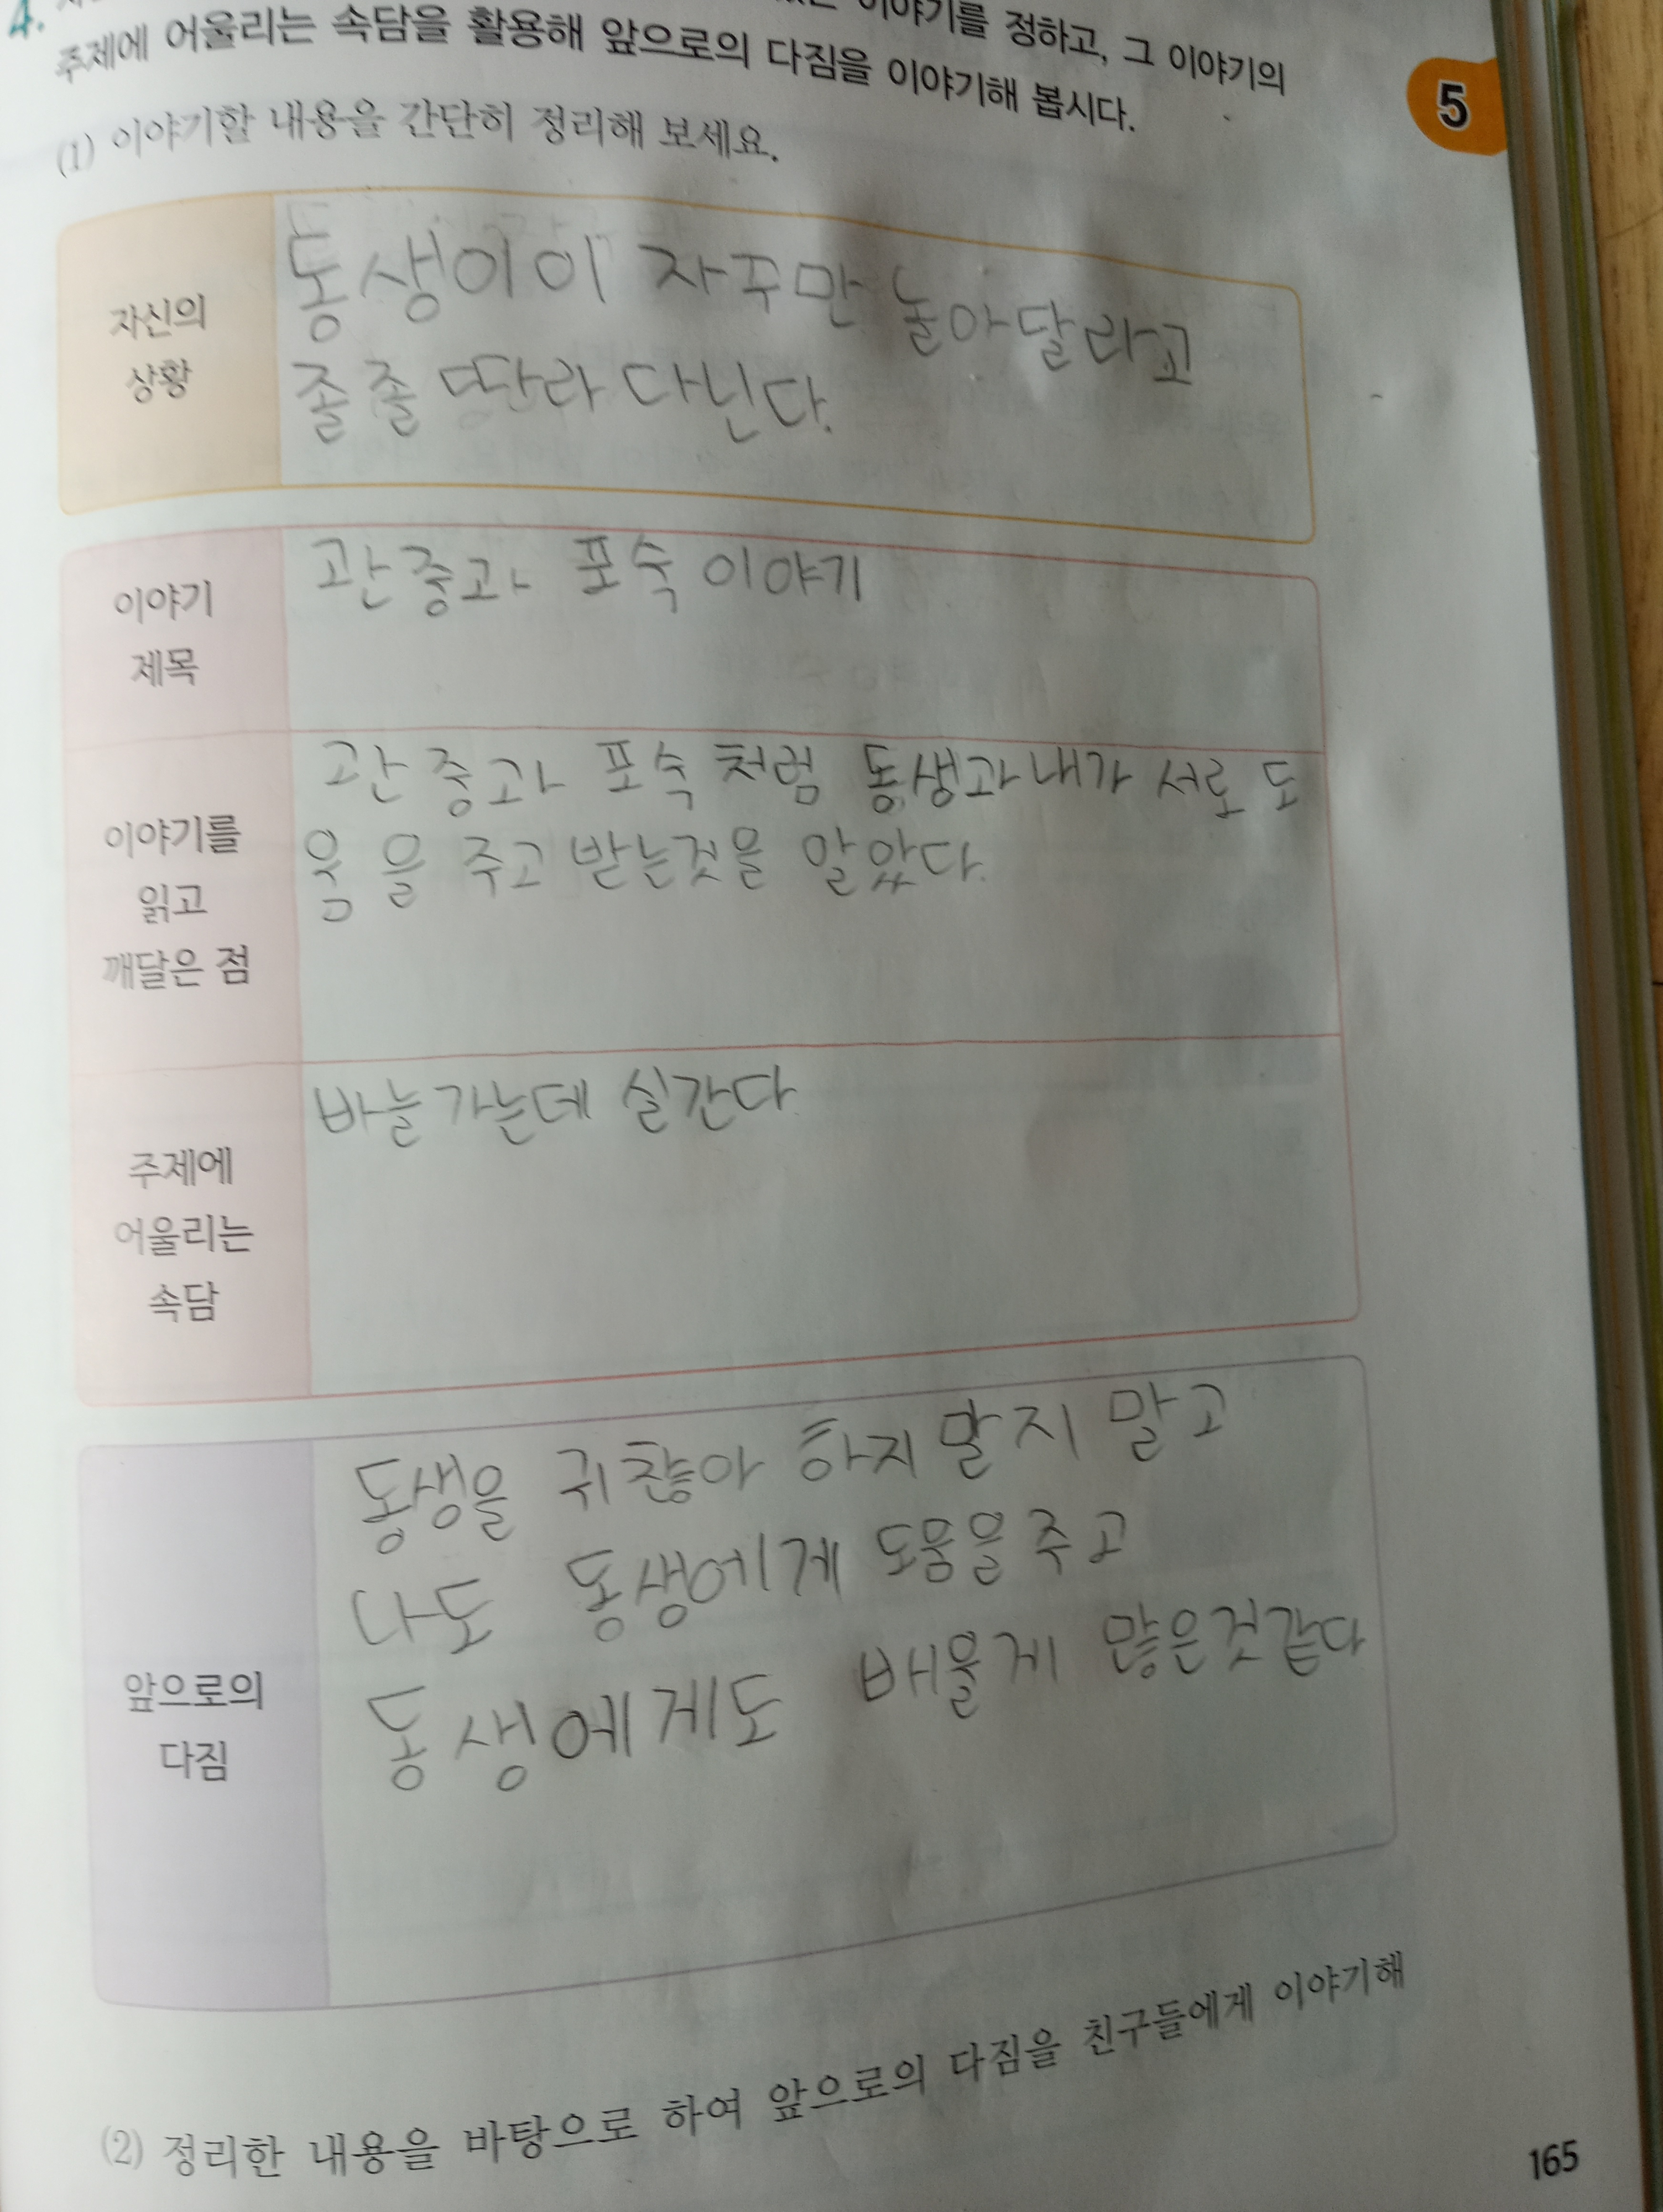 4.
이야기를 정하고, 그 이야기의
주제에 어울리는 속담을 활용해 앞으로의 다짐을 이야기해 봅시다.
5
(1) 이야기할 내용을 간단히 정리해 보세요.
자신의
상황
동생이이 자꾸만 놀아달라고
졸졸 딴라 다닌다.
이야기
제목
관중과 포숙 이야기
이야기를
읽고
깨달은 점
관중과 포숙 처럼 동생과 내가 서로 도
움을 주고 받는것을 알았다.
주제에
어울리는
속담
바늘가는데 실간다
앞으로의
다짐
동생을 귀찮아 하지 말지 말고
나도 동생에게 도움을 주고
동생에게도 배울게 많은것같다
(2) 정리한 내용을 바탕으로 하여 앞으로의 다짐을 친구들에게 이야기해
165